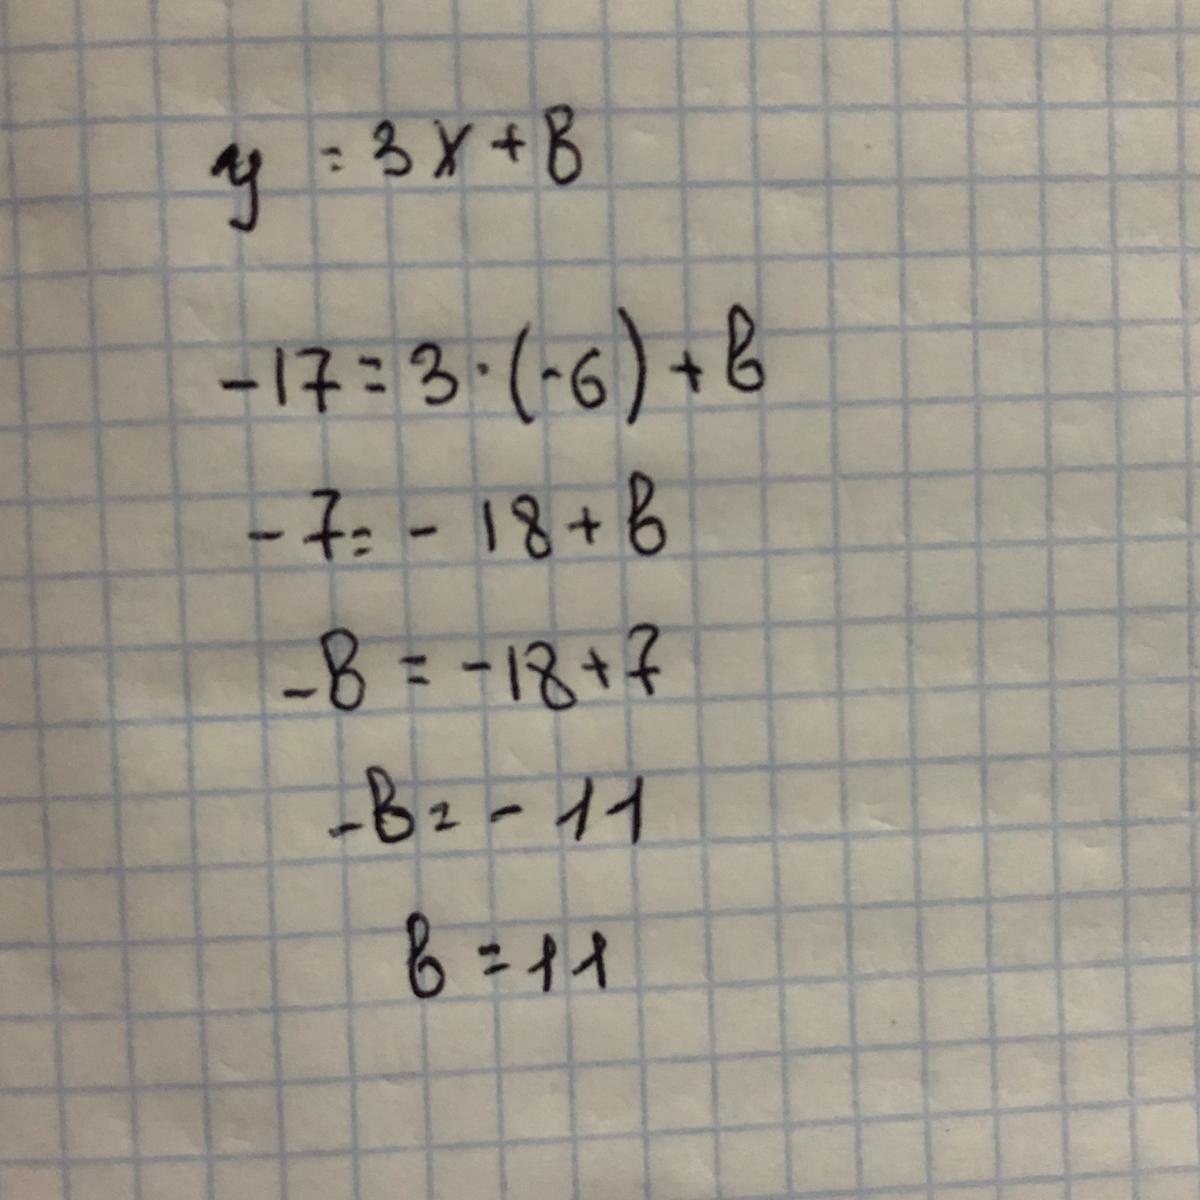 y = 3x + в
-17 = 3 · (-6) + в
-7 = - 18 + в
-в = -18 + 7
-в = - 11
в = 11